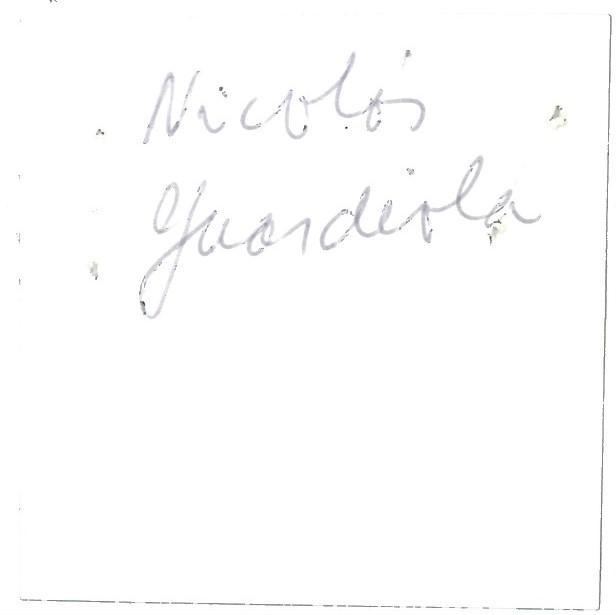 Nicolás
Guardiola